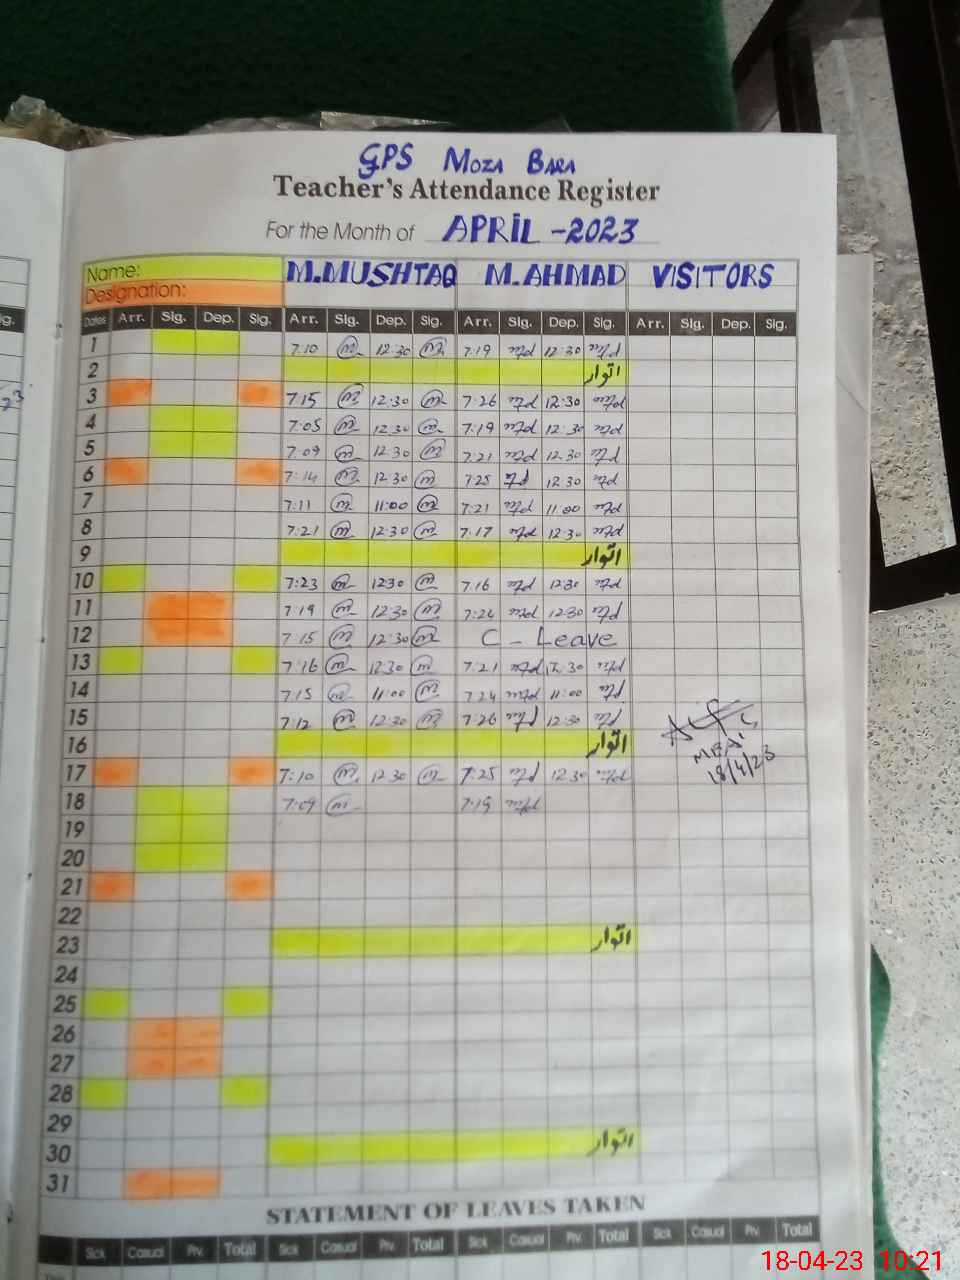 GPS MOZA BARA
Teacher's Attendance Register
For the Month of APRIL -2023
Name: M.MUSHTAQ M.AHMAD VISITORS
Designation:
Dates Arr. Sig. Dep. Sig. Arr. Sig. Dep. Sig. Arr. Sig. Dep. Sig. Arr. Sig. Dep. Sig.
1 7:10 12:30 7:19 12:30
2 اتوار
3 7:15 12:30 7:26 12:30
4 7:05 12:30 7:19 12:30
5 7:09 12:30 7:21 12:30
6 7:14 12:30 7:25 12:30
7 7:11 11:00 7:21 11:00
8 7:21 12:30 7:17 12:30
9 اتوار
10 7:23 12:30 7:16 12:30
11 7:19 12:30 7:24 12:30
12 7:15 12:30 C - Leave
13 7:16 12:30 7:21 12:30
14 7:15 11:00 7:24 11:00
15 7:12 12:30 7:26 12:30
16 اتوار
17 7:10 12:30 7:25 12:30 18/4/23
18 7:09 7:19
19
20
21
22
23 اتوار
24
25
26
27
28
29
30 اتوار
31
STATEMENT OF LEAVES TAKEN
Sick Casual Prv. Total Sick Casual Prv. Total Sick Casual Prv. Total Sick Casual Prv. Total
18-04-23 10:21